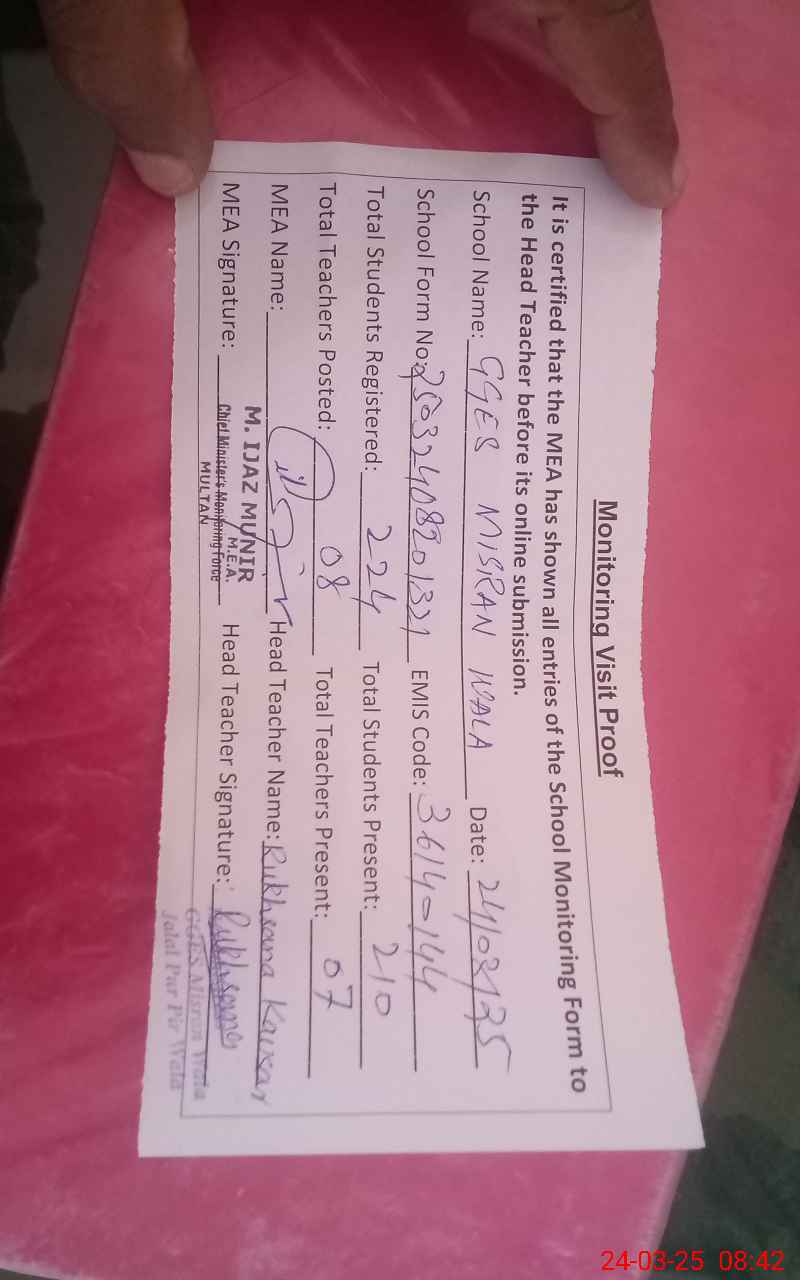 Monitoring Visit Proof
It is certified that the MEA has shown all entries of the School Monitoring Form to
the Head Teacher before its online submission.
School Name: GGES MISRAN WALA Date: 24/03/25
School Form No: 25032408201321 EMIS Code: 36140144
Total Students Registered: 224 Total Students Present: 210
Total Teachers Posted: 08 Total Teachers Present: 07
MEA Name: Head Teacher Name: Rukhsana Kausar
M. IJAZ MUNIR
M.E.A.
MEA Signature: Chief Minister's Monitoring Force Head Teacher Signature: Rukhsana
MULTAN
GGES Misran Wala
Jalal Pur Pir Wala
24-03-25 08:42